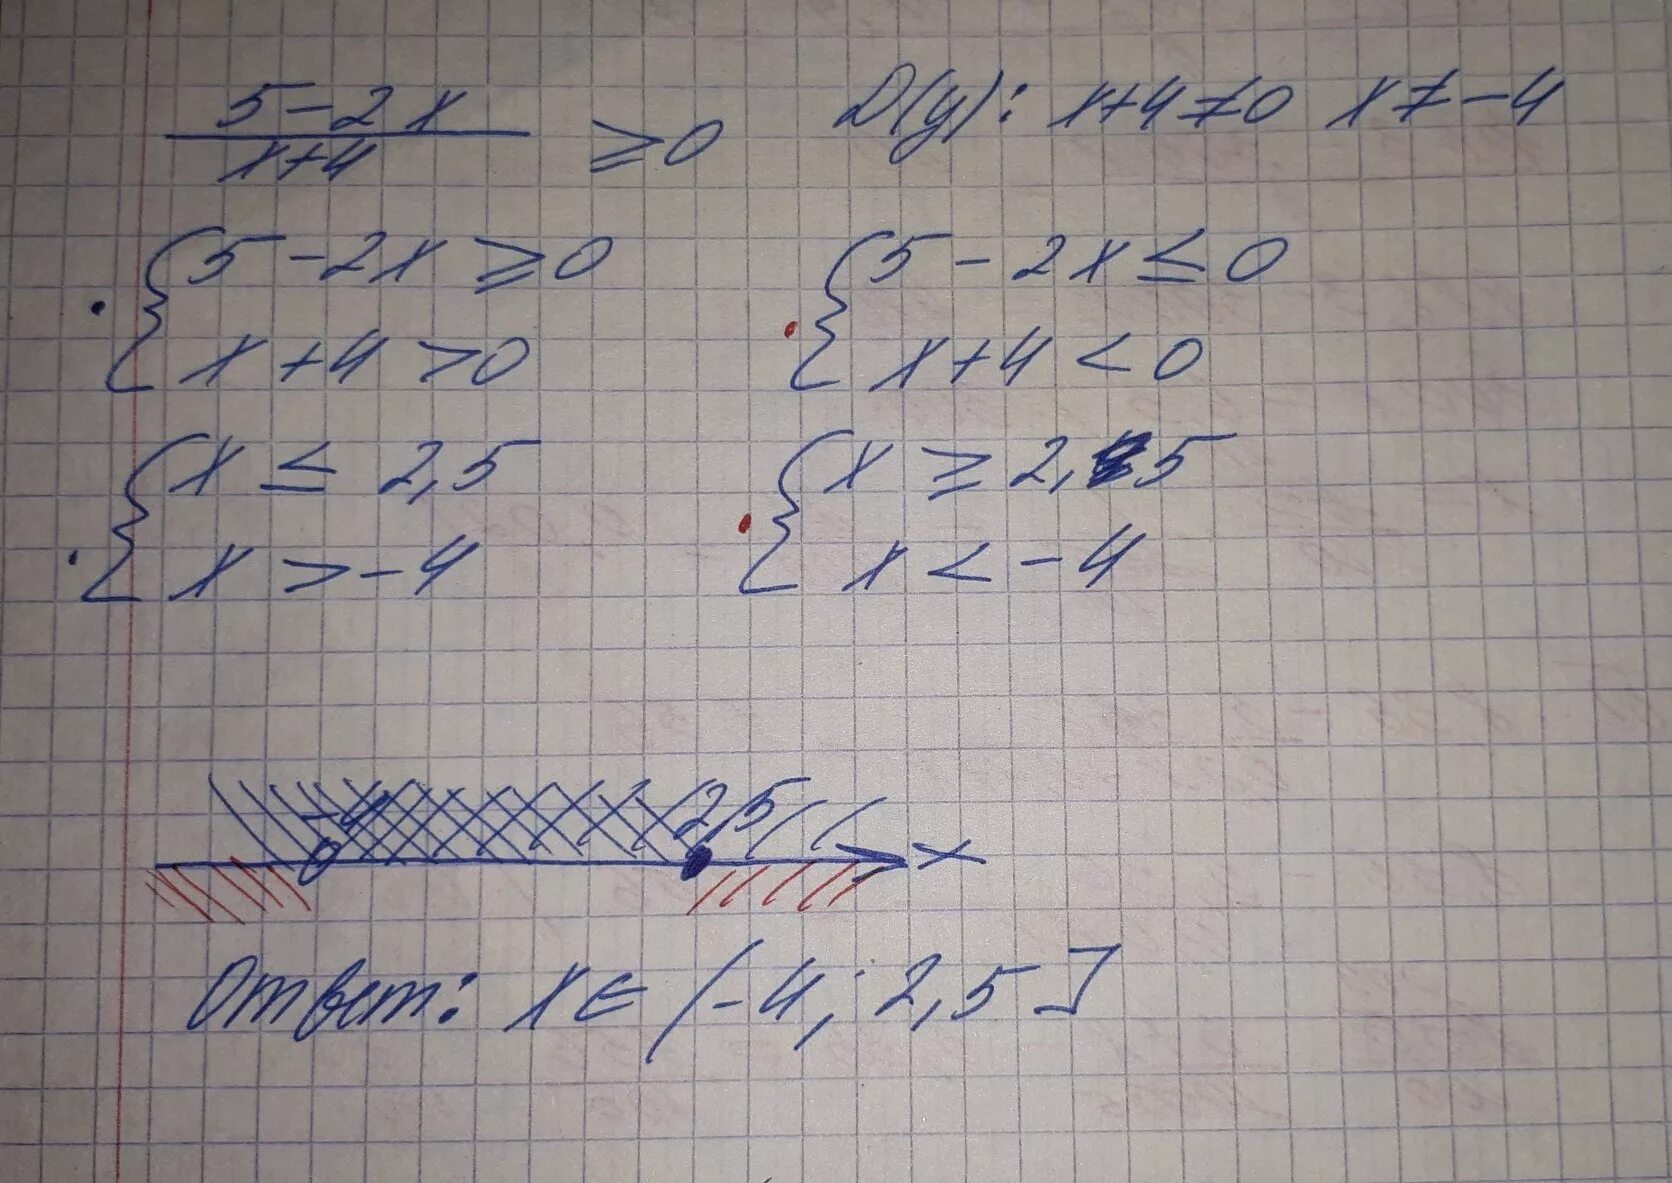 5-2x / x+4 ≥0 D(y): x+4≠0 x≠-4
{5-2x ≥0 {5-2x≤0
x+4>0 x+4<0
{x ≤ 2,5 {x ≥ 2,5
x >-4 x < -4
-4 2,5 x
Ответ: x∈(-4; 2,5]